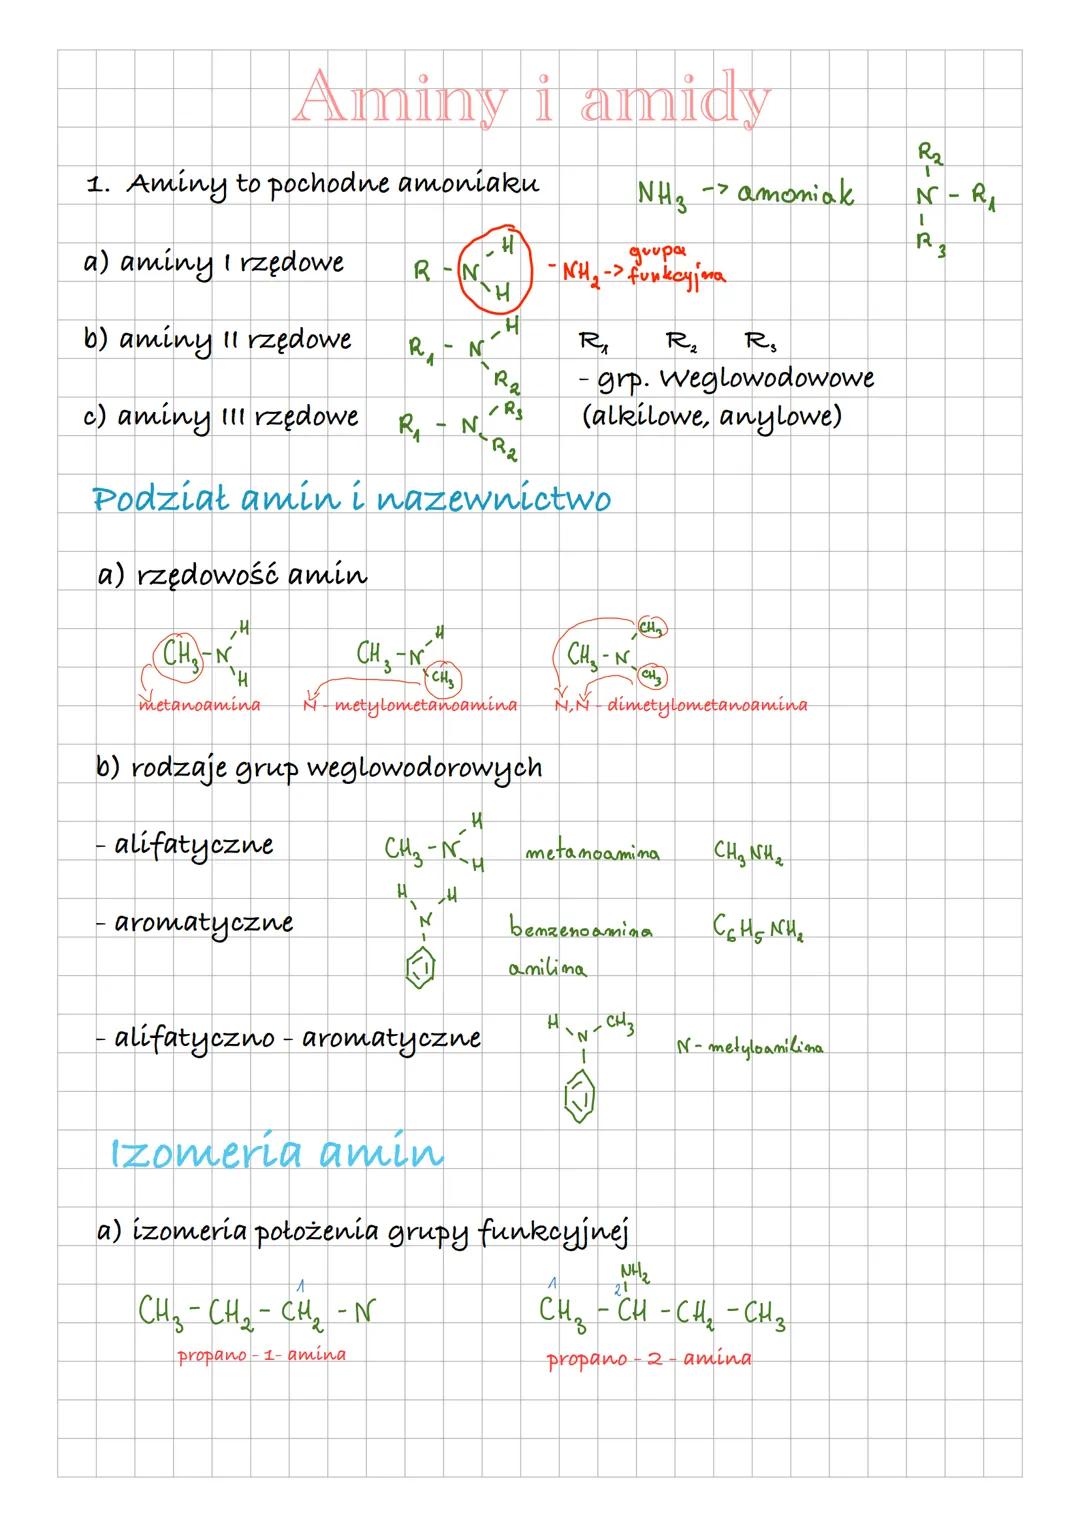 Aminy i amidy
1. Aminy to pochodne amoniaku
NH₃ -> amoniak
R₂
N - R₁
R₃
a) aminy I rzędowe
R - N
H
H
- NH₂ -> grupa funkcyjna
b) aminy II rzędowe
R₁ - N
H
R₂
R₁ R₂ R₃
- grp. Weglowodowowe
(alkilowe, anylowe)
c) aminy III rzędowe
R₁ - N
R₃
R₂
Podział amin i nazewnictwo
a) rzędowość amin
CH₃ - N
H
H
CH₃ - N
H
CH₃
CH₃ - N
CH₃
CH₃
metanoamina
N - metylometanoamina
N,N - dimetylometanoamina
b) rodzaje grup weglowodorowych
- alifatyczne
CH₃ - N
H
H
metanoamina
CH₃NH₂
- aromatyczne
H
H
N
benzenoamina
C₆H₅NH₂
anilina
- alifatyczno - aromatyczne
H
N - CH₃
N - metyloanilina
Izomeria amin
a) izomeria położenia grupy funkcyjnej
1
CH₃ - CH₂ - CH₂ - N
propano - 1- amina
NH₂
1 2
CH₃ - CH - CH₂ - CH₃
propano - 2 - amina